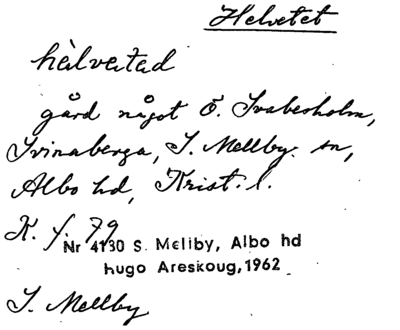 Helvetet
hälvetad
gård något Ö. Svabesholm,
Svinaberga, S. Mellby sn,
Albo hd, Krist. l.
K. f. 79
Nr 4130 S. Mellby, Albo hd
hugo Areskoug, 1962
S. Mellby